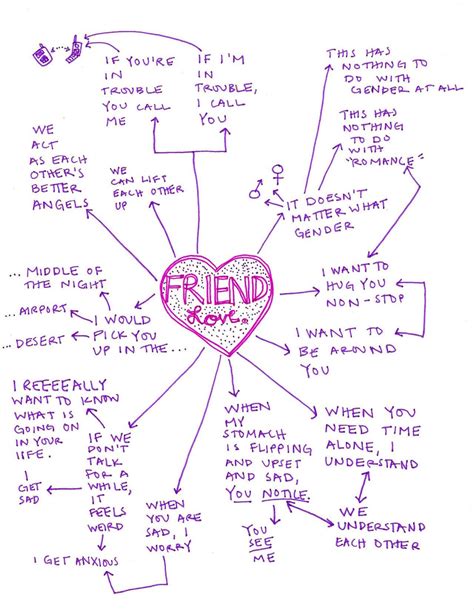 IF YOU'RE
IN
TROUBLE
YOU CALL
ME
IF I'M
IN
TROUBLE,
I CALL
YOU
THIS HAS
NOTHING TO
DO WITH
GENDER AT ALL
THIS HAS
NOTHING
TO DO
WITH
"ROMANCE"
WE
ACT
AS EACH
OTHER'S
BETTER
ANGELS
WE
CAN LIFT
EACH OTHER
UP
♂ ♀
IT DOESN'T
MATTER WHAT
GENDER
FRIEND
Love
... MIDDLE OF
THE NIGHT
... AIRPORT
... DESERT
I WOULD
PICK YOU
UP IN THE...
I WANT TO
HUG YOU
NON-STOP
I WANT TO
BE AROUND
YOU
I REEEEALLY
WANT TO KNOW
WHAT IS
GOING ON
IN YOUR
LIFE.
I
GET
SAD
IF WE
DON'T
TALK
FOR A
WHILE,
IT
FEELS
WEIRD
I GET ANXIOUS
WHEN
YOU ARE
SAD, I
WORRY
WHEN
MY
STOMACH
IS FLIPPING
AND UPSET
AND SAD,
YOU NOTICE.
YOU
SEE
ME
WHEN YOU
NEED TIME
ALONE, I
UNDERSTAND
WE
UNDERSTAND
EACH OTHER